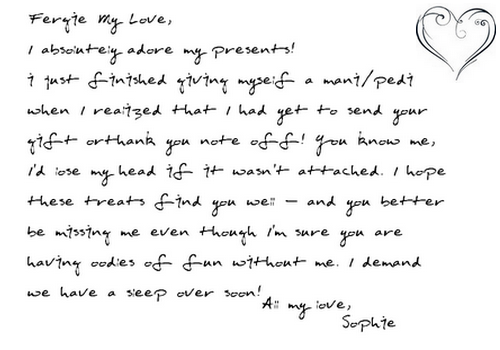 Fergie My Love,
I absolutely adore my presents!
I just finished giving myself a mani/pedi
when I realized that I had yet to send your
gift orthank you note off! You know me,
I'd lose my head if it wasn't attached. I hope
these treats find you well - and you better
be missing me even though I'm sure you are
having oodles of fun without me. I demand
we have a sleep over soon!
All my love,
Sophie